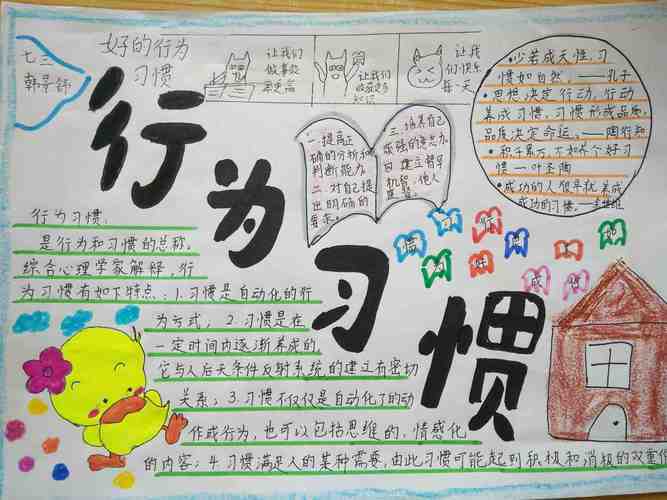 七三
韩景舒
好的行为
习惯
让我们
做事效
率更高
让我们
收获更多
知识
让我们
们快乐
每一天
行为习惯
•少若成天性,习
惯如自然。——孔子
•思想决定行动,行动
养成习惯,习惯形成品质,
品质决定命运。——陶行知
•积千累万,不如养个好习
惯——叶圣陶
•成功的人很早就养成
成功的习惯。
一.提高正
确的分析和
判断能力
二.对自己提
出明确的
要求。
三.培养自己
顽强的意志力
四.建立督导
机制,他人
监督。
行为习惯,
是行为和习惯的总称。
综合心理学家解释,行
为习惯有如下特点:1.习惯是自动化的行
为方式;2.习惯是在
一定时间内逐渐养成的,
它与人后天条件反射系统的建立有密切
关系;3.习惯不仅仅是自动化了的动
作或行为,也可以包括思维的、情感化
的内容;4.习惯满足人的某种需要,由此习惯可能起到积极和消极的双重作